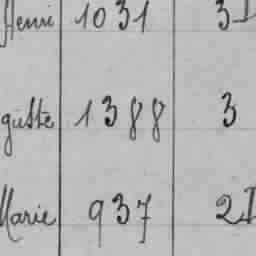 Henri 1031 3D
gutte 1388 3
Marie 937 2D